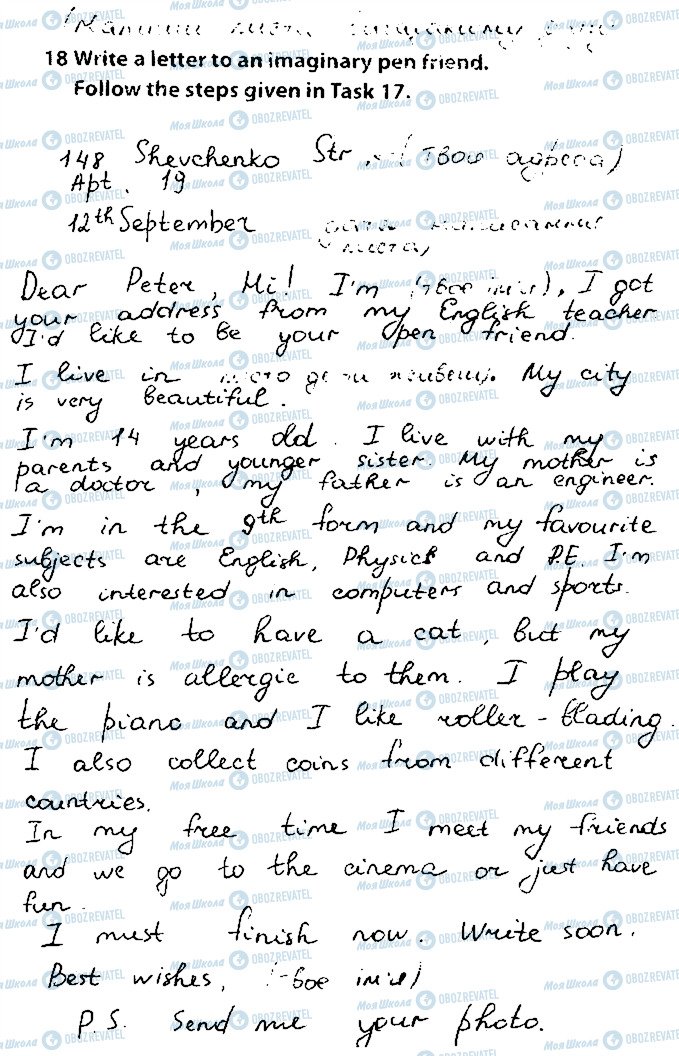 18 Write a letter to an imaginary pen friend.
Follow the steps given in Task 17.
148 Shevchenko Str. (твоя адреса)
Apt. 19
12th September дата написання
листа)
Dear Peter, Hi! I'm (твоє ім'я). I got
your address from my English teacher
I'd like to be your pen friend.
I live in місто де ти живеш). My city
is very beautiful.
I'm 14 years old. I live with my
parents and younger sister. My mother is
a doctor, my father is an engineer.
I'm in the 9th form and my favourite
subjects are English, Physics and P.E. I'm
also interested in computers and sports.
I'd like to have a cat, but my
mother is allergic to them. I play
the piano and I like roller-blading.
I also collect coins from different
countries.
In my free time I meet my friends
and we go to the cinema or just have
fun.
I must finish now. Write soon.
Best wishes, (твоє ім'я)
P.S. Send me your photo.